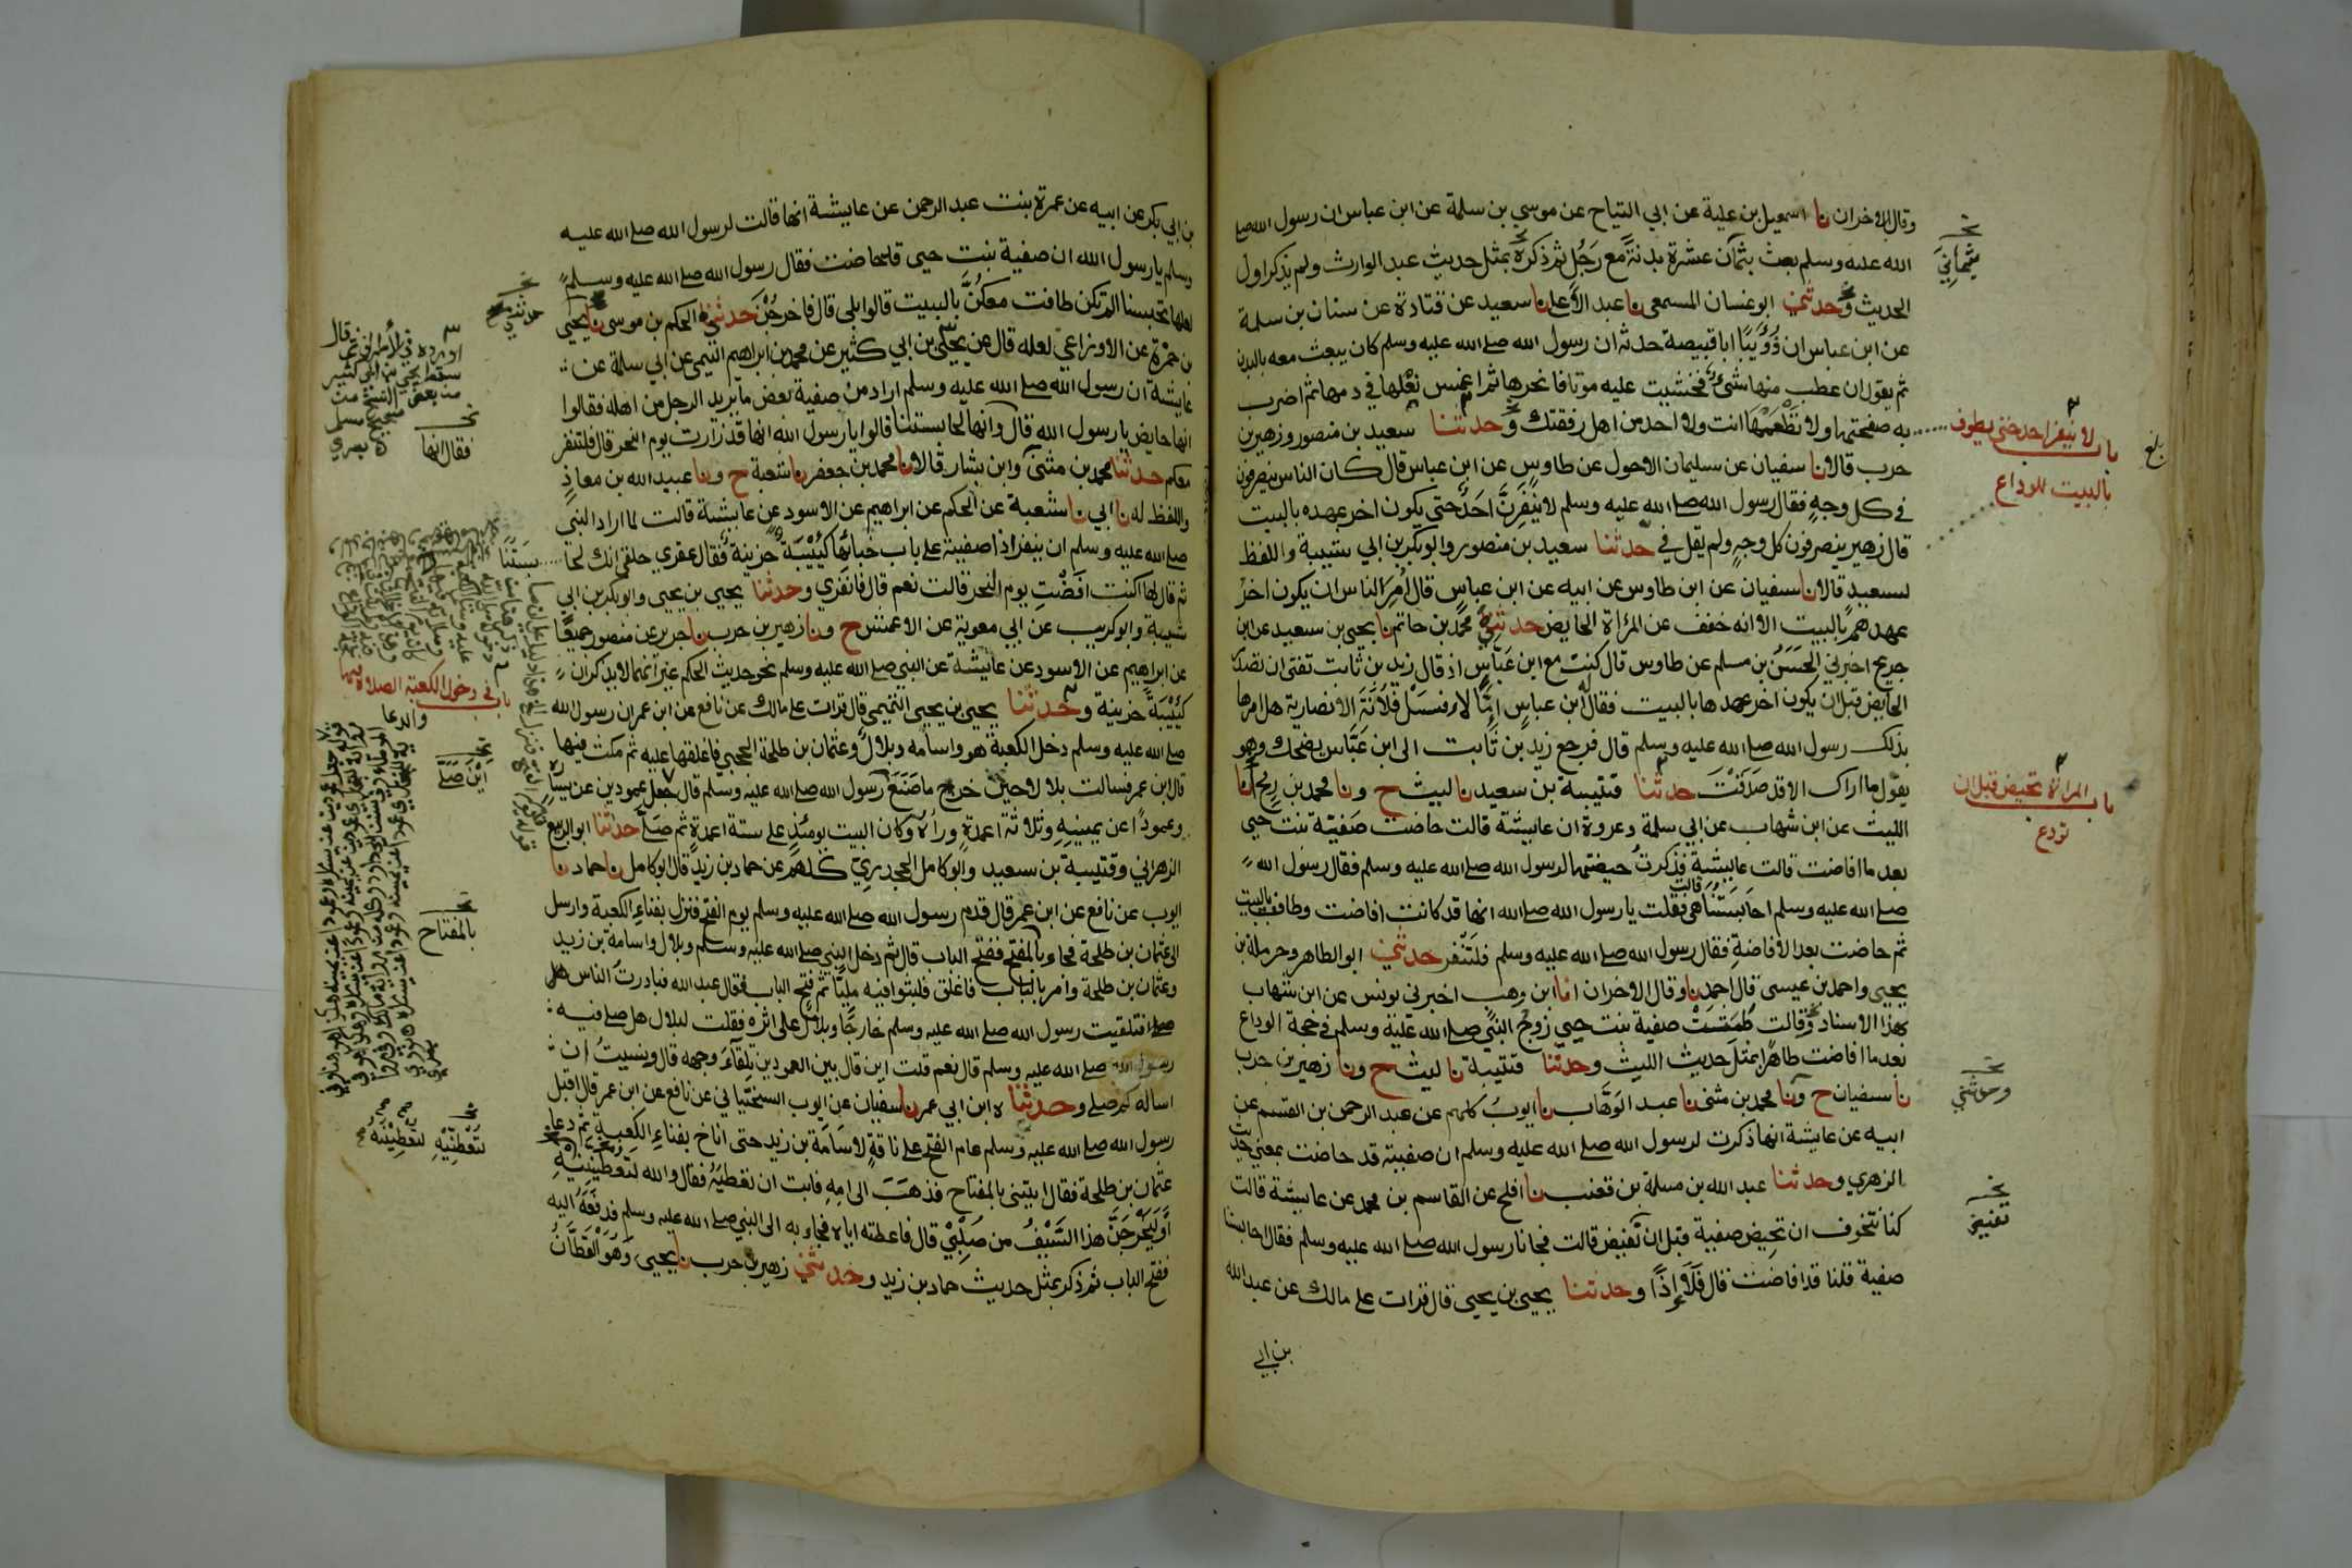 وقال الاخران نا اسمعيل بن علية عن ابي التياح عن موسي بن سلمة عن ابن عباس ان رسول الله صلى
الله عليه وسلم بعث بثمان عشرة بدنة مع رجل ثم ذكره بمثل حديث عبد الوارث ولم يذكر اول
الحديث وحدثني ابو غسان المسمعي نا عبد الأعلى نا سعيد عن قتادة عن سنان بن سلمة
عن ابن عباس ان ذُوَيْبًا ابا قبيصة حدثه ان رسول الله صلى الله عليه وسلم كان يبعث معه بالبدن
ثم يقول ان عطب منها شيء فخشيت عليه موتا فانحرها ثم اغمس نعلها في دمها ثم اضرب
به صفحتها ولا تطعمها انت ولا احد من اهل رفقتك وحدثنا سعيد بن منصور وزهير بن
حرب قالا نا سفيان عن سليمان الاحول عن طاوس عن ابن عباس قال كان الناس ينصرفون
في كل وجه فقال رسول الله صلى الله عليه وسلم لا ينفرن احد حتى يكون اخر عهده بالبيت
قال زهير ينصرفون كل وجه ولم يقل في حدثنا سعيد بن منصور وابو بكر بن ابي شيبة واللفظ
لسعيد قالا نا سفيان عن ابن طاوس عن ابيه عن ابن عباس قال امر الناس ان يكون اخر
عهدهم بالبيت الا انه خفف عن المرأة الحايض حدثني محمد بن حاتم نا يحيى بن سعيد عن ابن
جريج اخبرني الحسن بن مسلم عن طاوس قال كنت مع ابن عباس اذ قال زيد بن ثابت تفتي ان تصدر
الحايض قبل ان يكون اخر عهدها بالبيت فقال له ابن عباس إمَّا لا فسل فلانة الانصارية هل امرها
بذلك رسول الله صلى الله عليه وسلم قال فرجع زيد بن ثابت الى ابن عباس يضحك وهو
يقول ما اراك الا قد صدقت حدثنا قتيبة بن سعيد نا ليث ح ونا محمد بن ريح انا
الليث عن ابن شهاب عن ابي سلمة وعروة ان عايشة قالت حاضت صفية بنت حيي
بعد ما افاضت قالت عايشة فذكرت حيضتها لرسول الله صلى الله عليه وسلم فقال رسول الله
صلى الله عليه وسلم احابستنا هي قالت فقلت يا رسول الله انها قد كانت افاضت وطافت بالبيت
ثم حاضت بعد الافاضة فقال رسول الله صلى الله عليه وسلم فلتنفر حدثني ابو الطاهر وحرملة بن
يحيى واحمد بن عيسى قال احمد نا وقال الاخران انا ابن وهب اخبرني يونس عن ابن شهاب
بهذا الاسناد قالت طمثت صفية بنت حيي زوج النبي صلى الله عليه وسلم في حجة الوداع
بعد ما افاضت طاهرا بمثل حديث الليث وحدثنا قتيبة نا ليث ح ونا زهير بن حرب
نا سفيان ح ونا محمد بن مثنى نا عبد الوهاب نا ايوب كلهم عن عبد الرحمن بن القسم عن
ابيه عن عايشة انها ذكرت لرسول الله صلى الله عليه وسلم ان صفية قد حاضت بمعنى حديث
الزهري وحدثنا عبد الله بن مسلمة بن قعنب نا افلح عن القاسم بن محمد عن عايشة قالت
كنا نتخوف ان تحيض صفية قبل ان تفيض قالت فجانا رسول الله صلى الله عليه وسلم فقال احابستنا
صفية قلنا قد افاضت قال فلا إذًا وحدثنا يحيى بن يحيى قال قرات على مالك عن عبد الله
بن ابي
بثماني
باب لا ينفر احد حتى يطوف
بالبيت للوداع
بلغ
باب المراة تحيض قبل ان
تودع
وحدثني
تفيض
بن ابي بكر عن ابيه عن عمرة بنت عبد الرحمن عن عايشة انها قالت لرسول الله صلى الله عليه
وسلم يا رسول الله ان صفية بنت حيي قد حاضت فقال رسول الله صلى الله عليه وسلم
لعلها تحبسنا الم تكن طافت معكن بالبيت قالوا بلى قال فاخرجن حدثني الحكم بن موسى نا يحيى
بن حمزة عن الاوزاعي لعله قال عن يحيى بن ابي كثير عن محمد بن ابراهيم التيمي عن ابي سلمة عن
عايشة ان رسول الله صلى الله عليه وسلم اراد من صفية بعض ما يريد الرجل من اهله فقالوا
انها حايض يا رسول الله قال وانها لحابستنا قالوا يا رسول الله انها قد زارت يوم النحر قال فلتنفر
معكم حدثنا محمد بن مثنى وابن بشار قالا نا محمد بن جعفر نا شعبة ح ونا عبيد الله بن معاذ
واللفظ له نا ابي نا شعبة عن الحكم عن ابراهيم عن الاسود عن عايشة قالت لما اراد النبي
صلى الله عليه وسلم ان ينفر اذا صفية على باب خبائها كئيبة حزينة فقال عقرى حلقى انك لحا
ثم قال لها اكنت افضت يوم النحر قالت نعم قال فانفري وحدثنا يحيى بن يحيى وابو بكر بن ابي
شيبة وابو كريب عن ابي معوية عن الاعمش ح ونا زهير بن حرب نا جرير عن منصور جميعًا
عن ابراهيم عن الاسود عن عايشة عن النبي صلى الله عليه وسلم نحو حديث الحكم غير انهما لا يذكران
كئيبة حزينة وحدثنا يحيى بن يحيى التميمي قال قرات على مالك عن نافع عن ابن عمر ان رسول الله
صلى الله عليه وسلم دخل الكعبة هو واسامة وبلال وعثمان بن طلحة الحجبي فاغلقها عليه ثم مكث فيها
قال ابن عمر فسالت بلالا حين خرج ما صنع رسول الله صلى الله عليه وسلم قال جعل عمودين عن يساره
وعمودا عن يمينه وثلاثة اعمدة وراءه وكان البيت يومئذ على ستة اعمدة ثم صلى حدثنا ابو الربيع
الزهراني وقتيبة بن سعيد وابو كامل الجحدري كلهم عن حماد بن زيد قال ابو كامل نا حماد نا
ايوب عن نافع عن ابن عمر قال قدم رسول الله صلى الله عليه وسلم يوم الفتح فنزل بفناء الكعبة وارسل
الى عثمان بن طلحة فجاء بالمفتح ففتح الباب قال ثم دخل النبي صلى الله عليه وسلم وبلال واسامة بن زيد
وعثمان بن طلحة وامر بالباب فاغلق فلبثوا فيه مليًا ثم فتح الباب فقال عبد الله فبادرت الناس
فتلقيت رسول الله صلى الله عليه وسلم خارجًا وبلال على اثره فقلت لبلال هل صلى فيه
رسول الله صلى الله عليه وسلم قال نعم قلت اين قال بين العمودين تلقاء وجهه قال ونسيت ان
اساله كم صلى وحدثنا ابن ابي عمر نا سفيان عن ايوب السختياني عن نافع عن ابن عمر قال اقبل
رسول الله صلى الله عليه وسلم عام الفتح على ناقة لاسامة بن زيد حتى اناخ بفناء الكعبة ثم دعا
عثمان بن طلحة فقال ائتني بالمفتاح فذهب الى امه فابت ان تعطيه فقال والله لتعطينيه
أو ليخرجن هذا السيف من صلبي قال فاعطته اياه فجاء به الى النبي صلى الله عليه وسلم فدفعه اليه
ففتح الباب ثم ذكر بمثل حديث حماد بن زيد وحدثني زهير بن حرب نا يحيى وهو القطان
حدثني
فقال انها
بستنا
باب في دخول الكعبة الصلاة فيها
والدعا
اين صلى
بالمفتاح